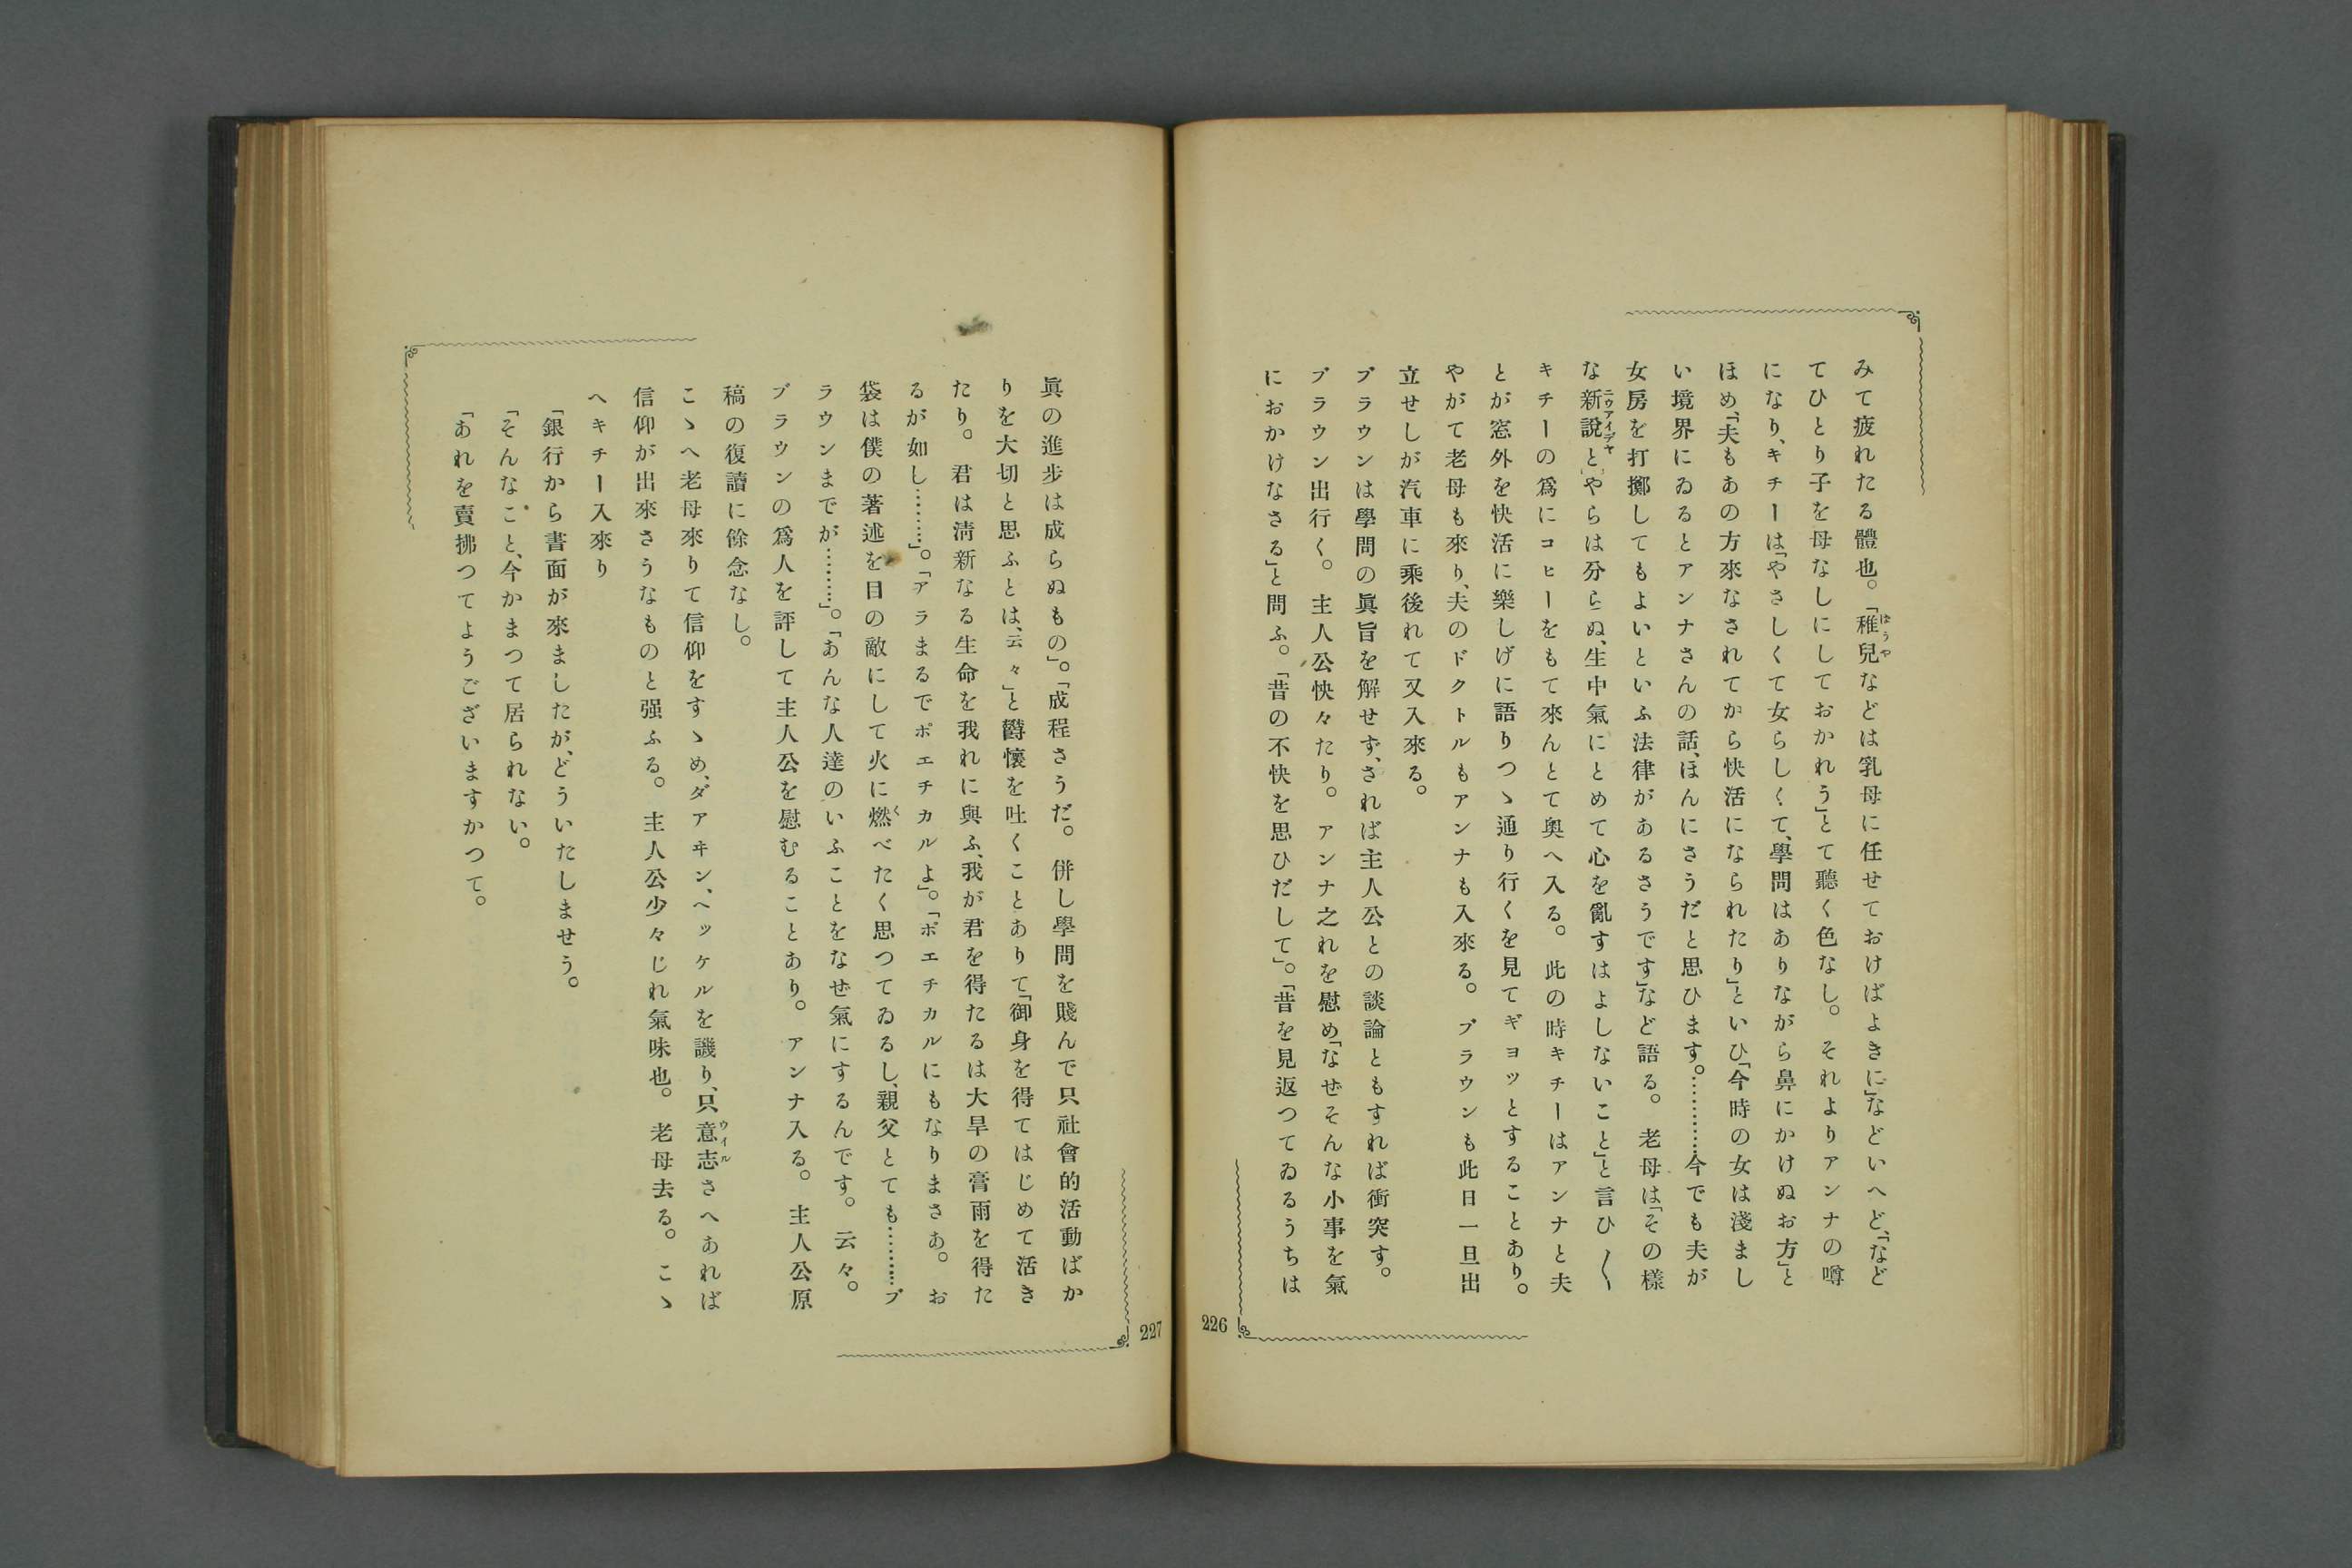 みて疲れたる體也。「稚兒などは乳母に任せておけばよきに」などいへど、「など
てひとり子を母なしにしておかれう」とて聽く色なし。それよりアンナの噂
になり、キチーは「やさしくて女らしくて、學問はありながら鼻にかけぬお方」と
ほめ、「夫もあの方來なされてから快活になられたり」といひ、「今時の女は淺まし
い境界にゐるとアンナさんの話、ほんにさうだと思ひます。…………今でも夫が
女房を打擲してもよいといふ法律があるさうです」など語る。老母は「その樣
な新說とやらは分らぬ、生中氣にとめて心を亂すはよしないこと」と言ひ〳〵
キチーの爲にコヒーをもて來んとて奥へ入る。此の時キチーはアンナと夫
とが窓外を快活に樂しげに語りつゝ通り行くを見てギョッとすることあり。
やがて老母も來り、夫のドクトルもアンナも入來る。ブラウンも此日一旦出
立せしが汽車に乘後れて又入來る。
ブラウンは學問の眞旨を解せず、されば主人公との談論ともすれば衝突す。
ブラウン出行く。主人公怏々たり。アンナ之れを慰め「なぜそんな小事を氣
におかけなさる」と問ふ。「昔の不快を思ひだして」。「昔を見返つてゐるうちは
226
眞の進步は成らぬもの」。「成程さうだ。併し學問を賤んで只社會的活動ばか
りを大切と思ふとは、云々」と欝懷を吐くことありて「御身を得てはじめて活き
たり。君は淸新なる生命を我れに與ふ、我が君を得たるは大旱の膏雨を得た
るが如し………」。「アラまるでポエチカルよ」。「ポエチカルにもなりまさあ。お
袋は僕の著述を目の敵にして火に燃べたく思つてゐるし、親父とても………ブ
ラウンまでが………」。「あんな人達のいふことをなぜ氣にするんです。云々。
ブラウンの爲人を評して主人公を慰むることあり。アンナ入る。主人公原
稿の復讀に餘念なし。
こゝへ老母來りて信仰をすゝめ、ダアヰン、ヘッケルを譏り、只意志さへあれば
信仰が出來さうなものと强ふる。主人公少々じれ氣味也。老母去る。こゝ
へキチー入來り
「銀行から書面が來ましたが、どういたしませう。
「そんなこと、今かまつて居られない。
「あれを賣拂つてようございますかつて。
227